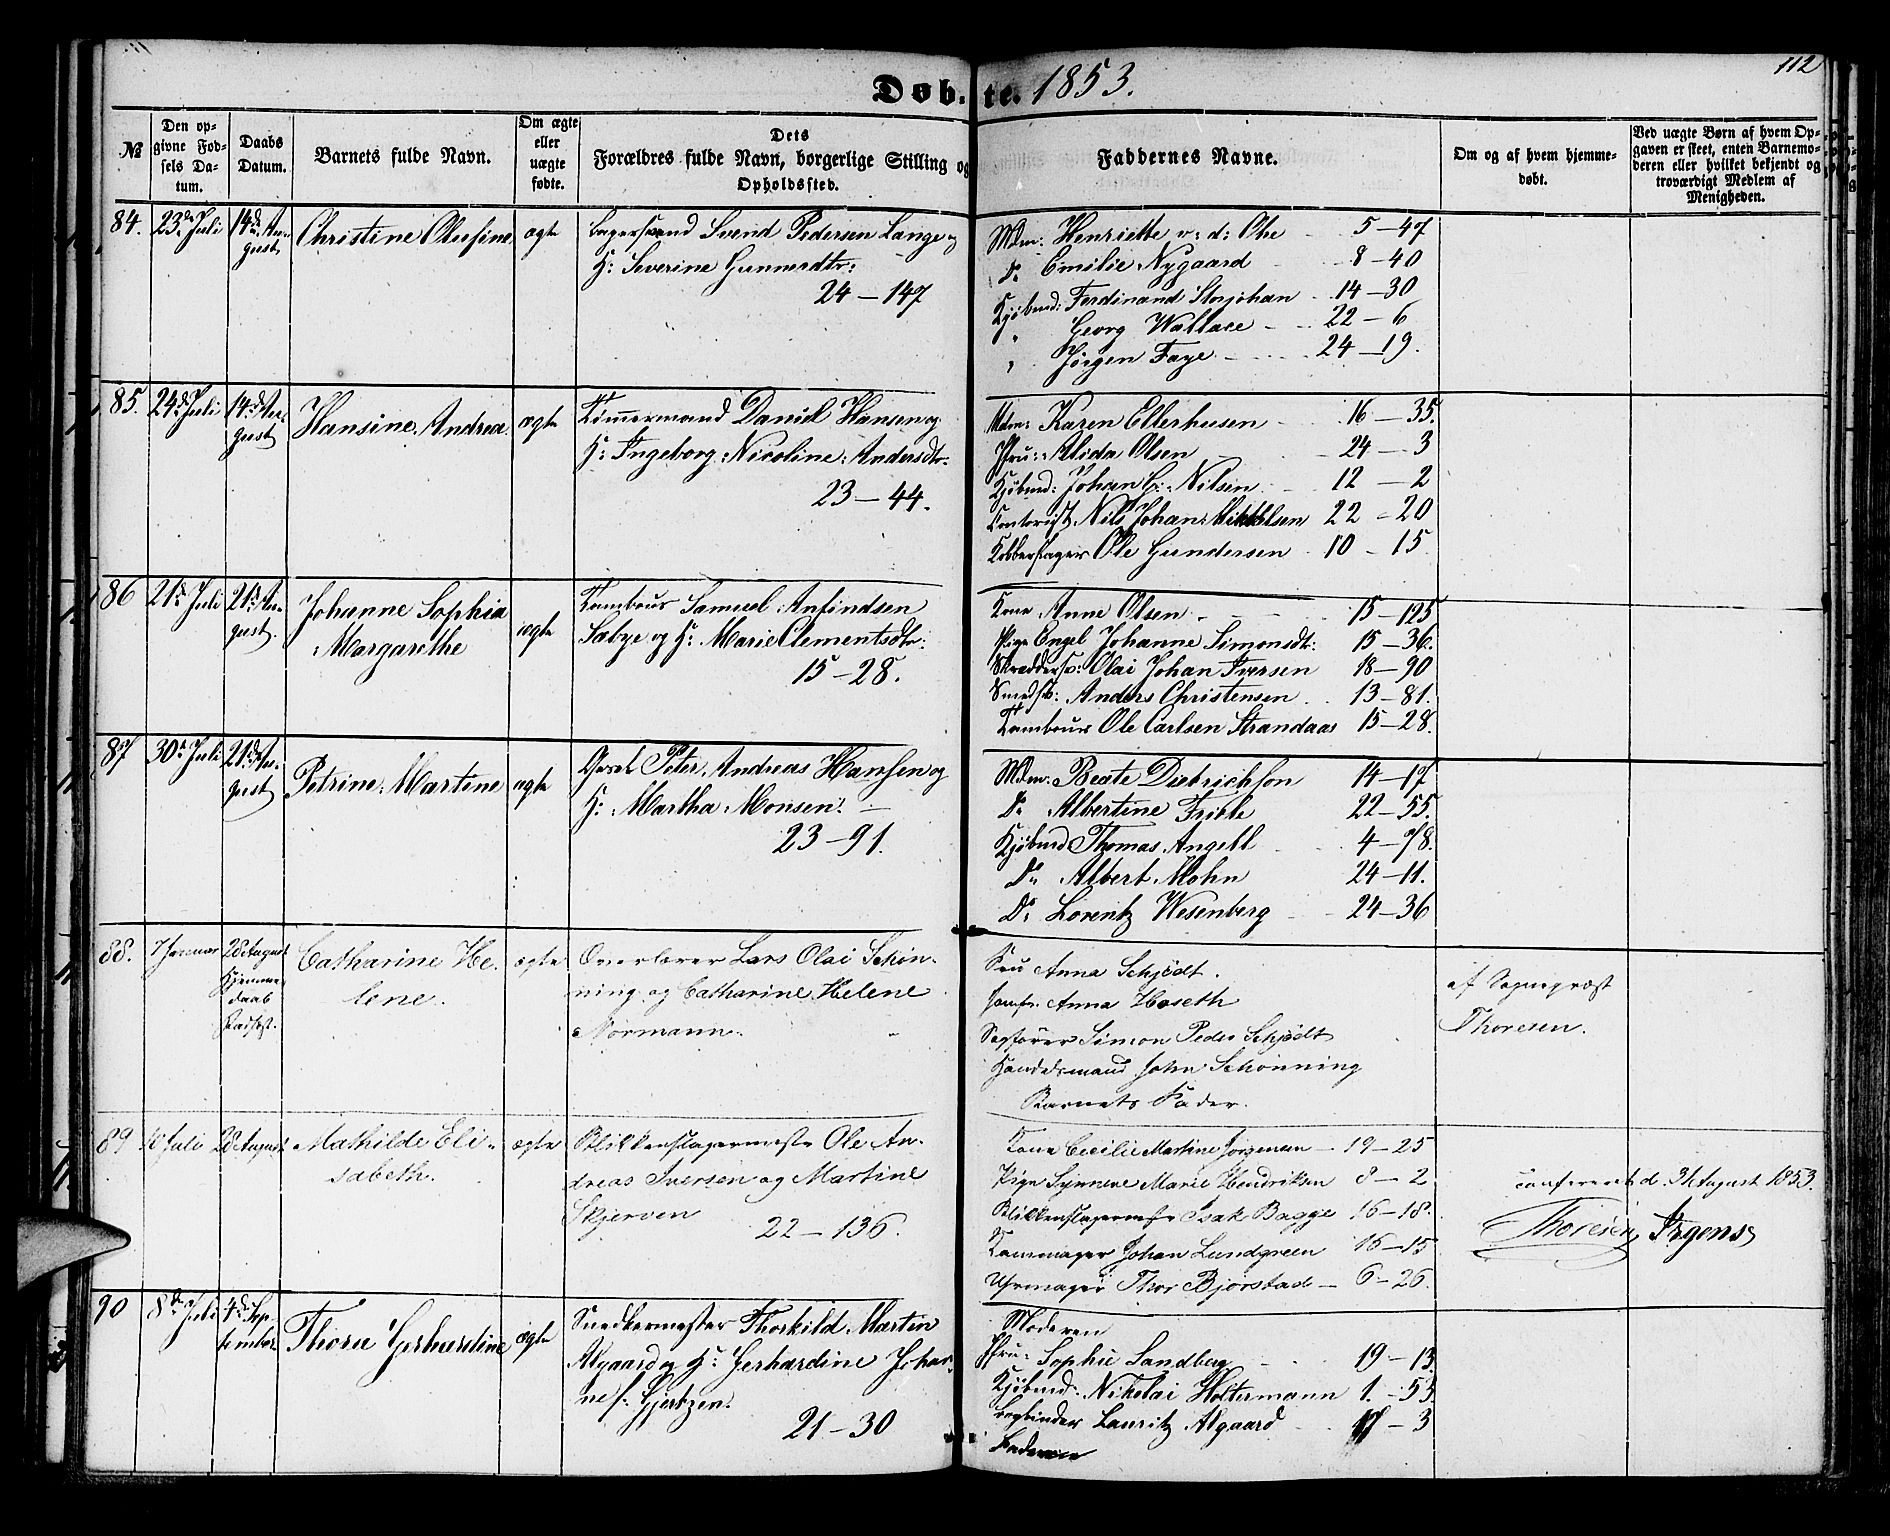 112
Døbte. 1853.
№
Den opgivne Fødsels Datum.
Daabs Datum.
Barnets fulde Navn.
Om ægte eller uægte fødte.
Dets Forældres fulde Navn, borgerlige Stilling og Opholdssted.
Faddernes Navne.
Om og af hvem hjemmedøbt.
Ved uægte Børn af hvem Opgaven er skeet, enten Barnemoderen eller hvilket bekjendt og troværdigt Medlem af Menigheden.
84. 23de Juli 14de August Christine Olufine ægte
Svend Pedersen Lange og
H: Severine Gunnerdtr:
24 – 147
Mdm: Henriette v: d: Ohe 5 – 47
Do Emilie Nygaard 8 – 40
Kjøbmd: Ferdinand Storjohan 14 – 30
" Georg Wallace 22 – 6
" Jørgen Faye 24 – 19.
85. 24de Juli 14de August Hansine Andrea ægte
Tømermand Daniel Hansen og
H: Ingeborg Nicoline Andersdtr.
23 – 44.
Mdm: Karen Ellerhusen 16 – 35.
Fru: Alida Olsen 24 – 3
Kjøbmd: Johan G: Nilsen 12 – 2
Contorist Nils Johan Mikkelsen 22 – 20
Kobberslager Ole Gundersen 10 – 15.
86 21de Juli 21de August. Johanne Sophia
Margarethe ægte
Tambour Samuel Anfindsen
Sæbye og H: Marie Clementsdtr:
15 – 28.
Kone Anne Olsen 15 – 125
Pige Engel Johanne Simonsdt: 15 – 36.
Skræddersv: Olai Johan Iversen 18 – 90
Smedsv: Anders Christensen 13 – 81.
Tambour Ole Carlsen Strandaas 15 – 28.
87 30te Juli 21de August Petrine Martine ægte
Peter Andreas Hansen og
H: Martha Monsen.
23 – 91.
Mdm: Beate Dietrichson 14 – 17
Do Albertine Friele 22 – 55.
Kjøbmd Thomas Angell 4 – 78.
Do Albert Mohn 24 – 11.
Do Lorentz Wesenberg 24 – 36
88. 7 Januar 28 August
Hjemme
daab
Catharine He-
lene. ægte
Overlærer Lars Olai Schøn-
ning og Catharine Helene
Normann.
Fru Anna Schjödt.
Jomfr. Anna Hoseth
Sagfører Simon Peder Schjödt
Handelsmand John Schønning
Barnets Fader.
af Sognepræst
Thoresen.
89 10 Juli 28 August Mathilde Eli-
sabeth. ægte
Blikkenslagermester Ole An-
dreas Iversen og Martine
Skjerven
22 – 136.
Kone Cecilie Martine Jørgensen – 19 – 25
Pige Synneve Marie Hendriksen 8 – 2
Blikkenslagermester Isak Bagge 16 – 18.
Kammager Johan Lundgreen 16 – 15
Uhrmager Thor Bjørstad – 6 – 26.
confereret d. 31 August 1853.
Thoresen Irgens
90 8de Juli 4de Sep-
tember Thora Gerhardine ægte
Snedkermester Thorkild Martin
Algaard og H: Gerhardine Johan-
ne f: Gjertzen.
21 – 30
Moderen
Fru: Sophie Sandberg 19 – 13
Kjøbmd: Nikolai Holtermann 1. – 53
Bogbinder Lauritz Algaard 17 – 3
Faderen